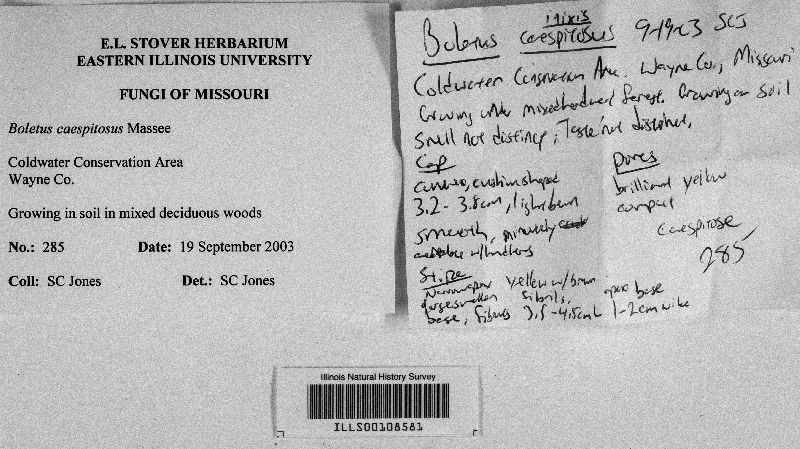 E.L. STOVER HERBARIUM
EASTERN ILLINOIS UNIVERSITY
FUNGI OF MISSOURI
Boletus caespitosus Massee
Coldwater Conservation Area
Wayne Co.
Growing in soil in mixed deciduous woods
No.: 285 Date: 19 September 2003
Coll: SC Jones Det.: SC Jones
Boletus caespitosus 9-19-03 SCJ
Coldwater Conservation Area. Wayne Co., Missouri
Growing under mixed hardwood forest. Growing on soil
Smell not distinct; Taste not distinct.
Cap
convex, cushion shaped
3.2 - 3.8cm, light brown
smooth, minutely
Pores
brilliant yellow
compact
Caespitose
285
Stipe
yellow w/ brown
fibrils, base
base, 3.5-4.5cm L 1-2cm wide
Illinois Natural History Survey
ILLS00108581